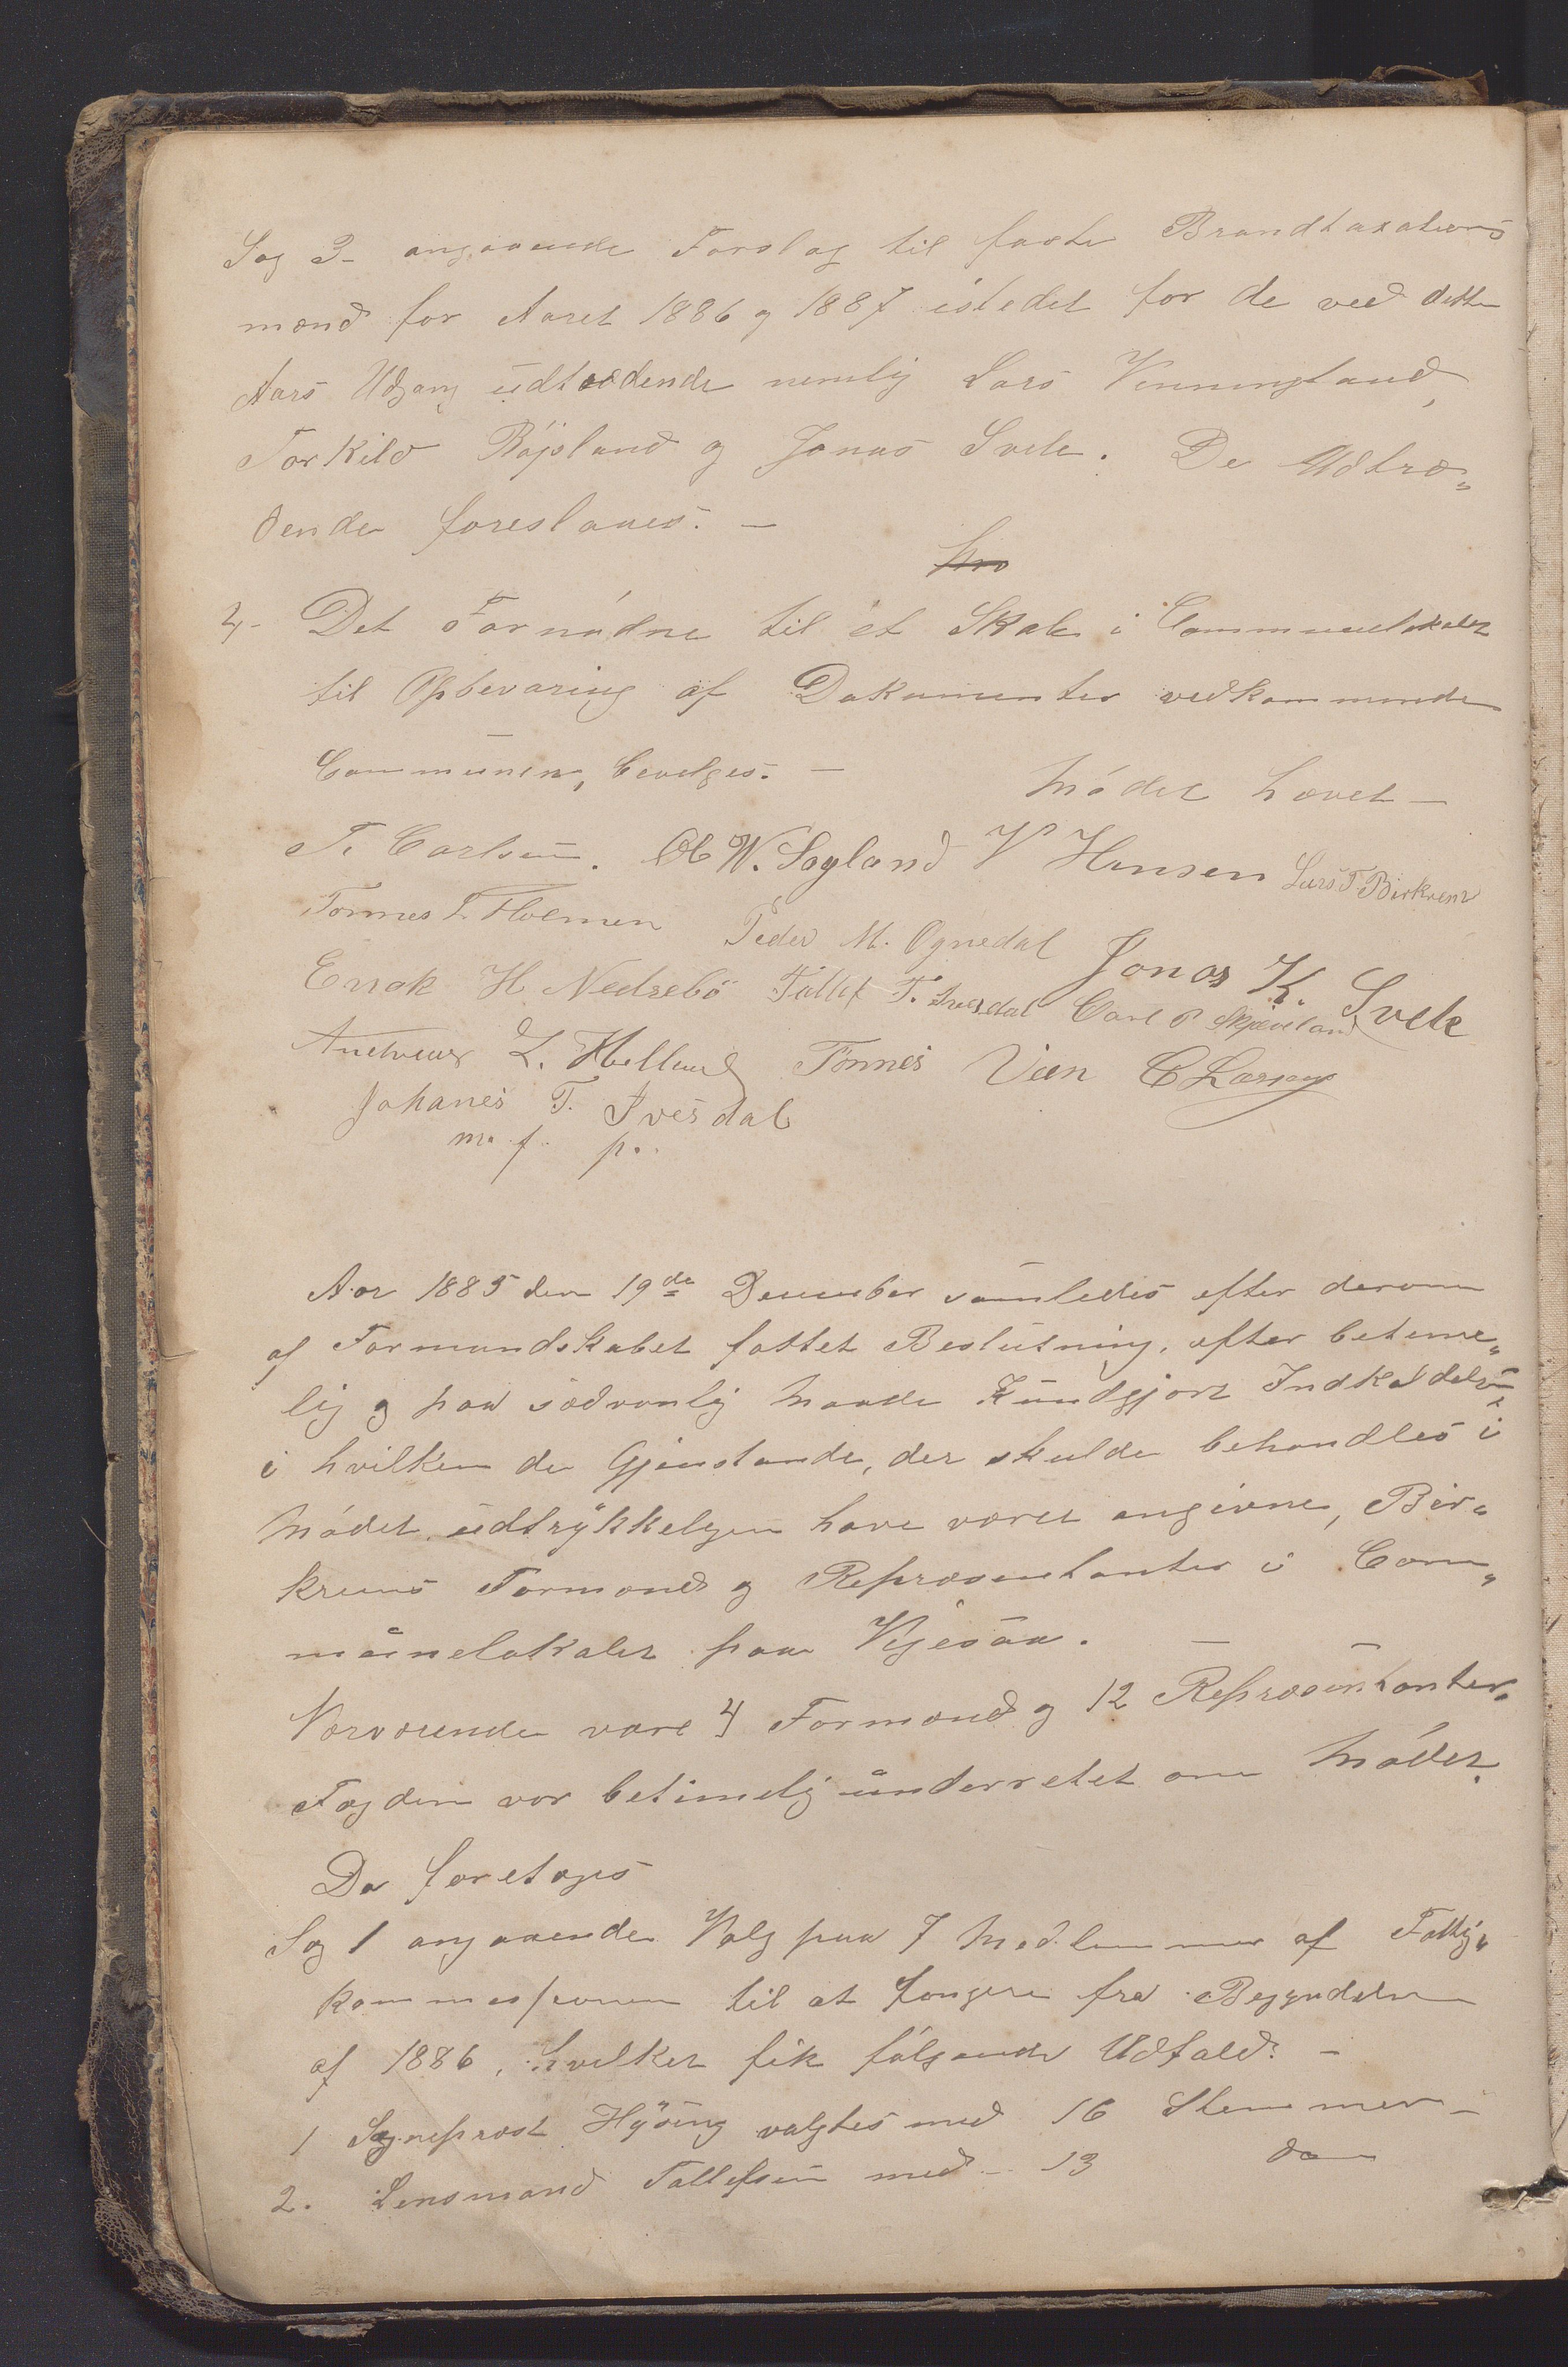 Sag 3 - angaaende Forslag til faste Brandtaxations
mænd for Aaret 1886 og 1887 istedet for de ved dette
Aars Udgang udtrædende nemlig Lars Vinningland,
Torkild Røysland og Jonas Svele. De Udtræ„
dende foreslaaes. —
4 - Det Fornødne til et Skab i Communelokalet
til Opbevaring af Dokumenter vedkommende
Communen, bevilges. —
Mødet hævet —
T. Carlsen. Ol W. Sagland V Hansen Lars T Birkrem
Tønnes T. Holmen Peder M. Ognedal Jonas K. Svele
Enok H Nedrebö Tallef T. Ivesdal Carl P Skjæveland
Andreas L. Helland Tønnes Veen C Larsen
Johanes T. Ivesdal
m. f. p..
Aar 1885 den 19de December samledes efter derom
af Formandskabet fattet Beslutning, efter betime„
lig og paa sædvanlig Maade kundgjort Indkaldelse
i hvilken de Gjenstande, der skulde behandles i
Mødet udtrykkelgen have været angivne, Bir„
krems Formænd og Repræsentanter i Com„
munelokalet paa Vigesaa. —
Nærværende vare 4 Formænd og 12 Repræsentanter.
Fogden var betimelig underretet om Mødet.
Da foretoges
Sag 1 angaaende Valg paa 7 Medlemmer af Fattig„
kommesjonen til at fungere fra Begyndelsen
af 1886, hvilket fik følgende Udfald: —
1 Sogneprest Hysing valgtes med 16 Stemmer —
2. Lensmand Tallefsen med — 13 do